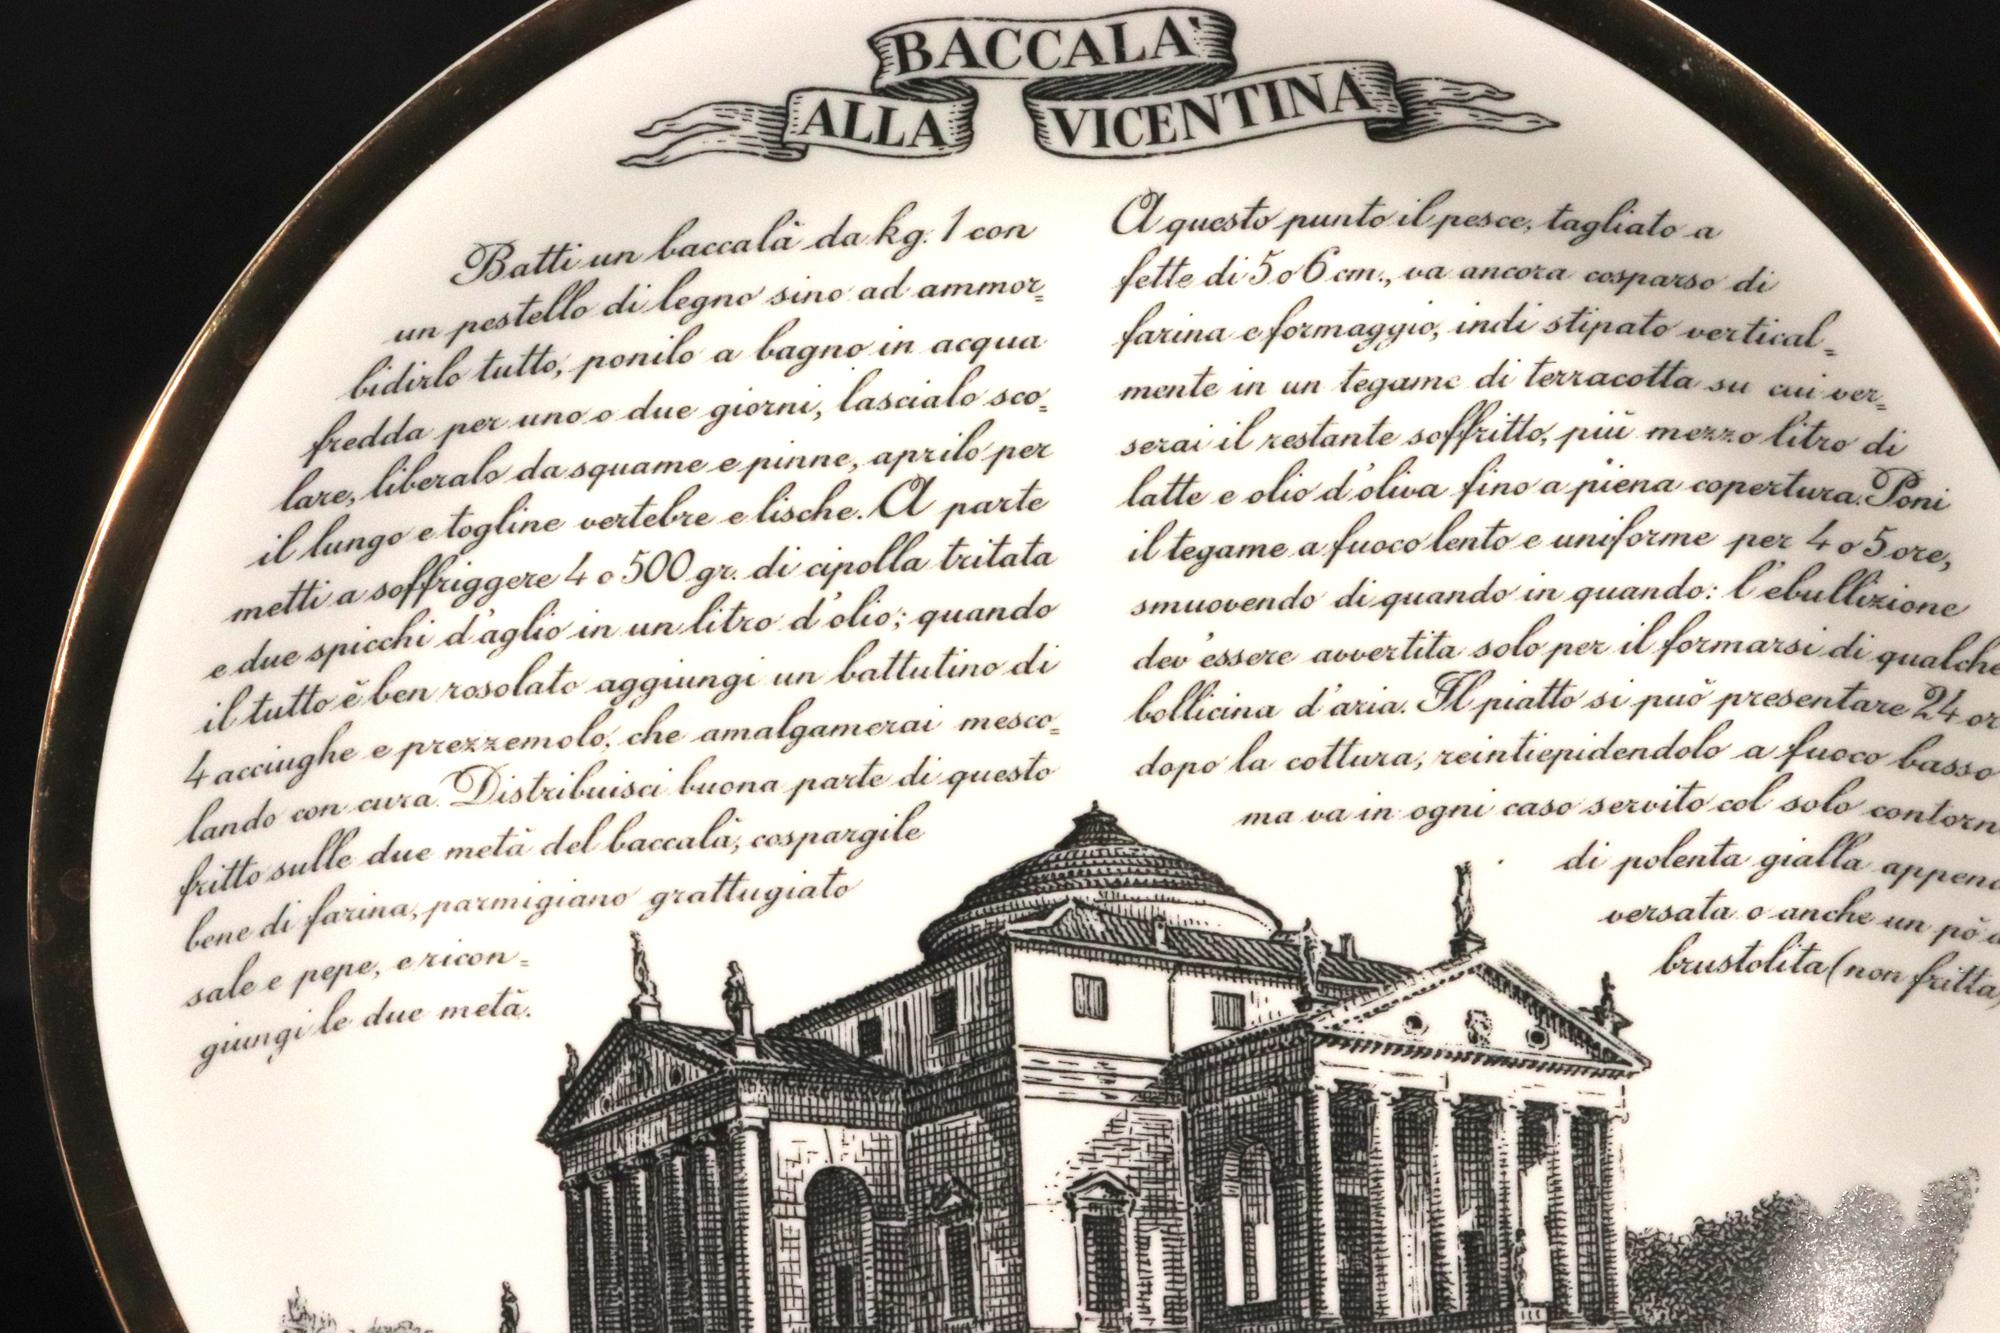 BACCALA'
ALLA VICENTINA
Batti un baccalà da kg. 1 con
un pestello di legno sino ad ammor=
bidirlo tutto, ponilo a bagno in acqua
fredda per uno o due giorni, lascialo sco=
lare, liberalo da squame e pinne, aprilo per
il lungo e togline vertebre e lische. A parte
metti a soffriggere 4 o 500 gr. di cipolla tritata
e due spicchi d'aglio in un litro d'olio; quando
il tutto è ben rosolato aggiungi un battutino di
4 acciughe e prezzemolo, che amalgamerai mesco=
lando con cura. Distribuisci buona parte di questo
fritto sulle due metà del baccalà, cospargile
bene di farina, parmigiano grattugiato
sale e pepe, e ricon=
giungi le due metà.
A questo punto il pesce, tagliato a
fette di 5 o 6 cm., va ancora cosparso di
farina e formaggio, indi stipato vertical=
mente in un tegame di terracotta su cui ver=
serai il restante soffritto, più mezzo litro di
latte e olio d'oliva fino a piena copertura. Poni
il tegame a fuoco lento e uniforme per 4 o 5 ore,
smuovendo di quando in quando: l'ebullizione
dev'essere avvertita solo per il formarsi di qualche
bollicina d'aria. Il piatto si può presentare 24 or
dopo la cottura, reintiepidendolo a fuoco basso
ma va in ogni caso servito col solo contorn
di polenta gialla appena
versata o anche un pò a
brustolita (non fritta)